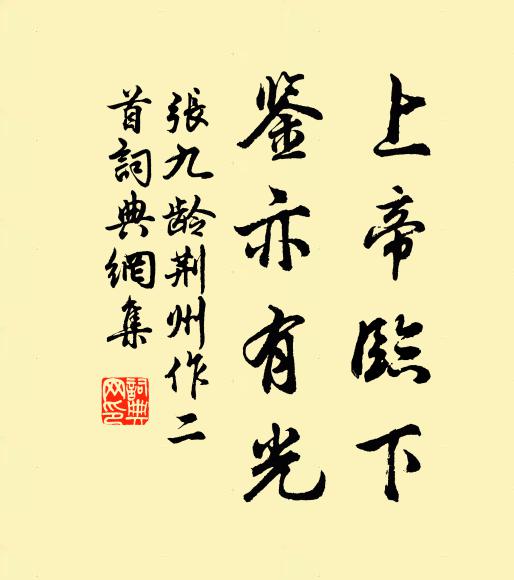 上帝臨下
鉴亦有光
張九龄荆州作二
首詞典網集
詞典
网印